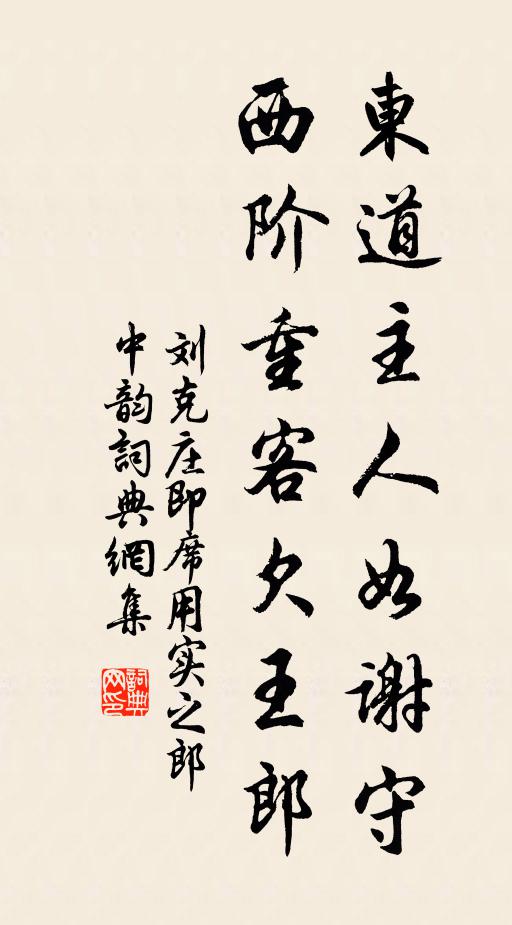 東道主人如谢守
西阶重客欠王郎
刘克庄即席用实之郎
中韵詞典網集
詞典
网印